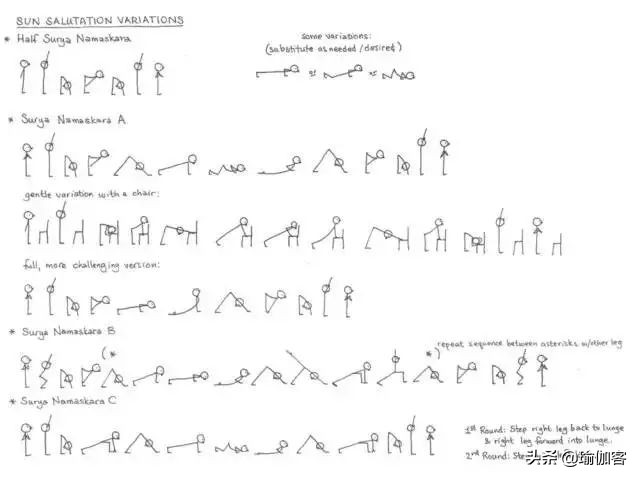 SUN SALUTATION VARIATIONS
* Half Surya Namaskara
some variations:
(substitute as needed/desired)
or or
* Surya Namaskara A
gentle variation with a chair:
full, more challenging version:
* Surya Namaskara B
(* *) repeat sequence between asterisks w/other leg
* Surya Namaskara C
1st Round: Step right leg back to lunge
& right leg forward into lunge.
2nd Round: Ste
头条 @瑜伽客